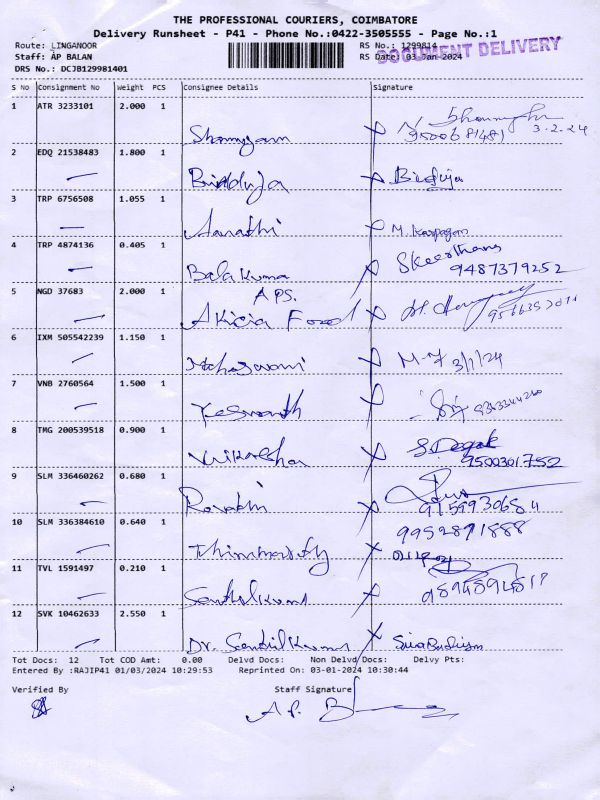 THE PROFESSIONAL COURIERS, COIMBATORE
Delivery Runsheet - P41 - Phone No.:0422-3505555 - Page No.:1
Route: LINGANOOR RS No.: 1299814
Staff: AP BALAN RS Date: 03 Jan-2024 DOCUMENT DELIVERY
DRS No.: DCJB129981401
S No Consignment No Weight PCS Consignee Details Signature
1 ATR 3233101 2.000 1 Shanmugam
9500681481 3.2.24
2 EDQ 21538483 1.800 1 Binduja Binduja
3 TRP 6756508 1.055 1 Aarathi M. Karpagam
4 TRP 4874136 0.405 1 Bala Kumar Skeerthana
9487379252
5 NGD 37683 2.000 1 APS.
Akicia Food
6 IXM 505542239 1.150 1 3/1/24
7 VNB 2760564 1.500 1 Yeswanth
8 TMG 200539518 0.900 1 S. Deepak
9500301752
9 SLM 336460262 0.680 1 Revathi
10 SLM 336384610 0.640 1 9952891888
11 TVL 1591497 0.210 1 Senthilkumar
12 SVK 10462633 2.550 1 Dr. Senthil Kumar
Tot Docs: 12 Tot COD Amt: 0.00 Delvd Docs: Non Delvd Docs: Delvy Pts:
Entered By :RAJIP41 01/03/2024 10:29:53 Reprinted On: 03-01-2024 10:30:44
Verified By Staff Signature
A.P.